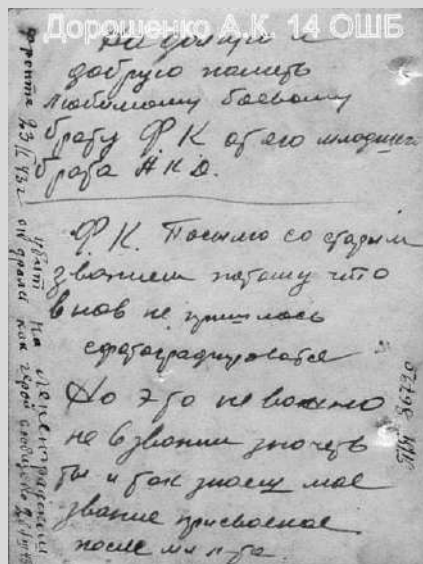 Дорошенко А.К. 14 ОШБ
На долгую и
добрую память
любимому боевому
брату Ф К от его младшего
брата А.К.Д.
Ф.К. Посылаю со старым
званием потому что
в нов не пришлось
сфотографироваться
Но это не важно
не в звании значеть
ты и так знаеш мое
звание присвоеное
после мл л-та.
убит на Ленинградском
фронте 23/II 43 г он дрался как герой сообщено